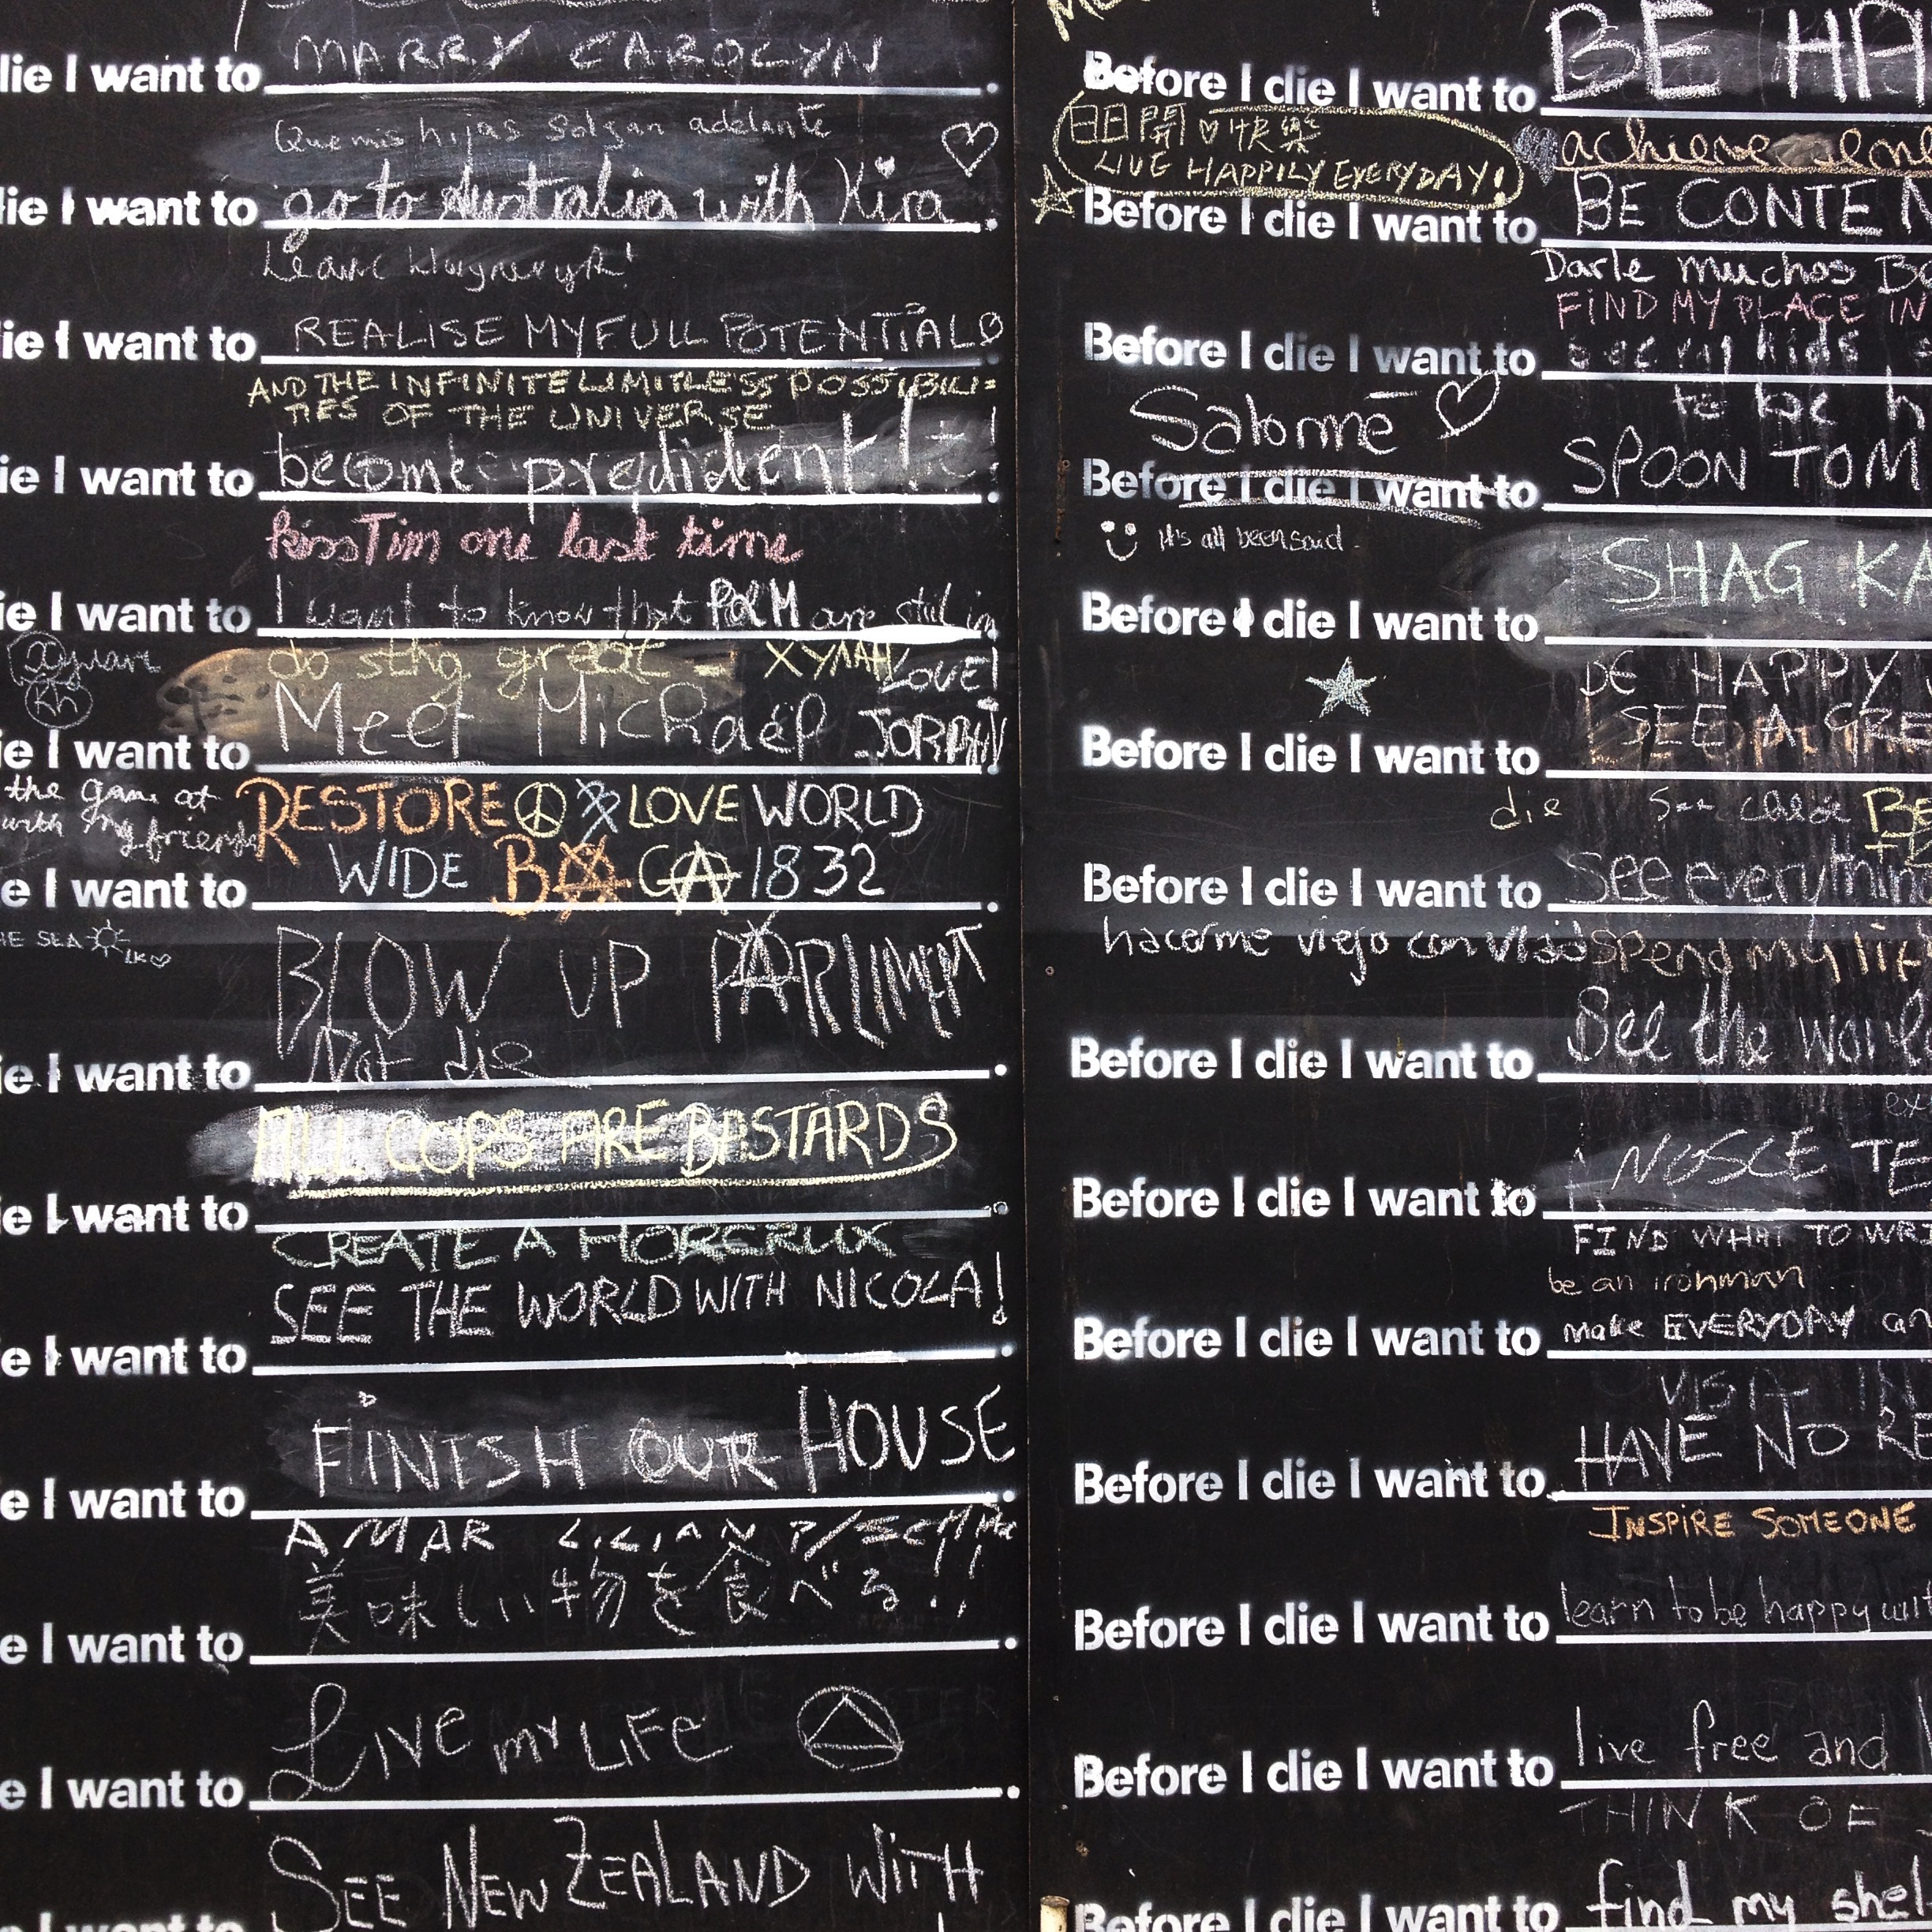 die I want to MARRY CAROLYN.
Que mis hijas salgan adelante
die I want to go to Australia with Kira.
Learn
die I want to REALISE MY FULL POTENTIAL.
AND THE INFINITE LIMITLESS POSSIBILI=
TIES OF THE UNIVERSE
die I want to become
kiss Tim one last time
ie I want to I want to know that P&M are still in
LOVE!
do sthg great
ie I want to Meet Michael JORDAN.
the game at
with my friends
RESTORE LOVE WORLD
e I want to WIDE 1832.
THE SEA
BLOW UP PARLIMENT
ie I want to Not die.
ALL COPS ARE BASTARDS
e I want to.
CREATE A HORCRUX
SEE THE WORLD WITH NICOLA!
e I want to.
FINISH OUR HOUSE
e I want to.
AMAR LILIAN
美味しい物を食べる!!
e I want to.
LIVE MY LIFE
e I want to.
SEE NEW ZEALAND WITH
I want to
Before I die I want to BE HA
開 快樂
LIVE HAPPILY EVERYDAY!
achieve
Before I die I want to BE CONTEN
Darle muchos
FIND MY PLACE IN
Before I die I want to kids
Salomé
to be h
Before I die I want to SPOON TOM
It's all been said.
SHAG KA
Before I die I want to
BE HAPPY
Before I die I want to SEE A GRE
die
See
BE
Before I die I want to See everythin
hacerme viejo con Vlad
spend my lif
Before I die I want to See the worl
Before I die I want to NOSCE TE
FIND WHAT TO WRI
be an ironman
Before I die I want to make EVERYDAY
VISIT
Before I die I want to HAVE NO RE
INSPIRE SOMEONE
Before I die I want to learn to be happy wit
Before I die I want to live free and
THINK OF
Before I die I want to find my shel